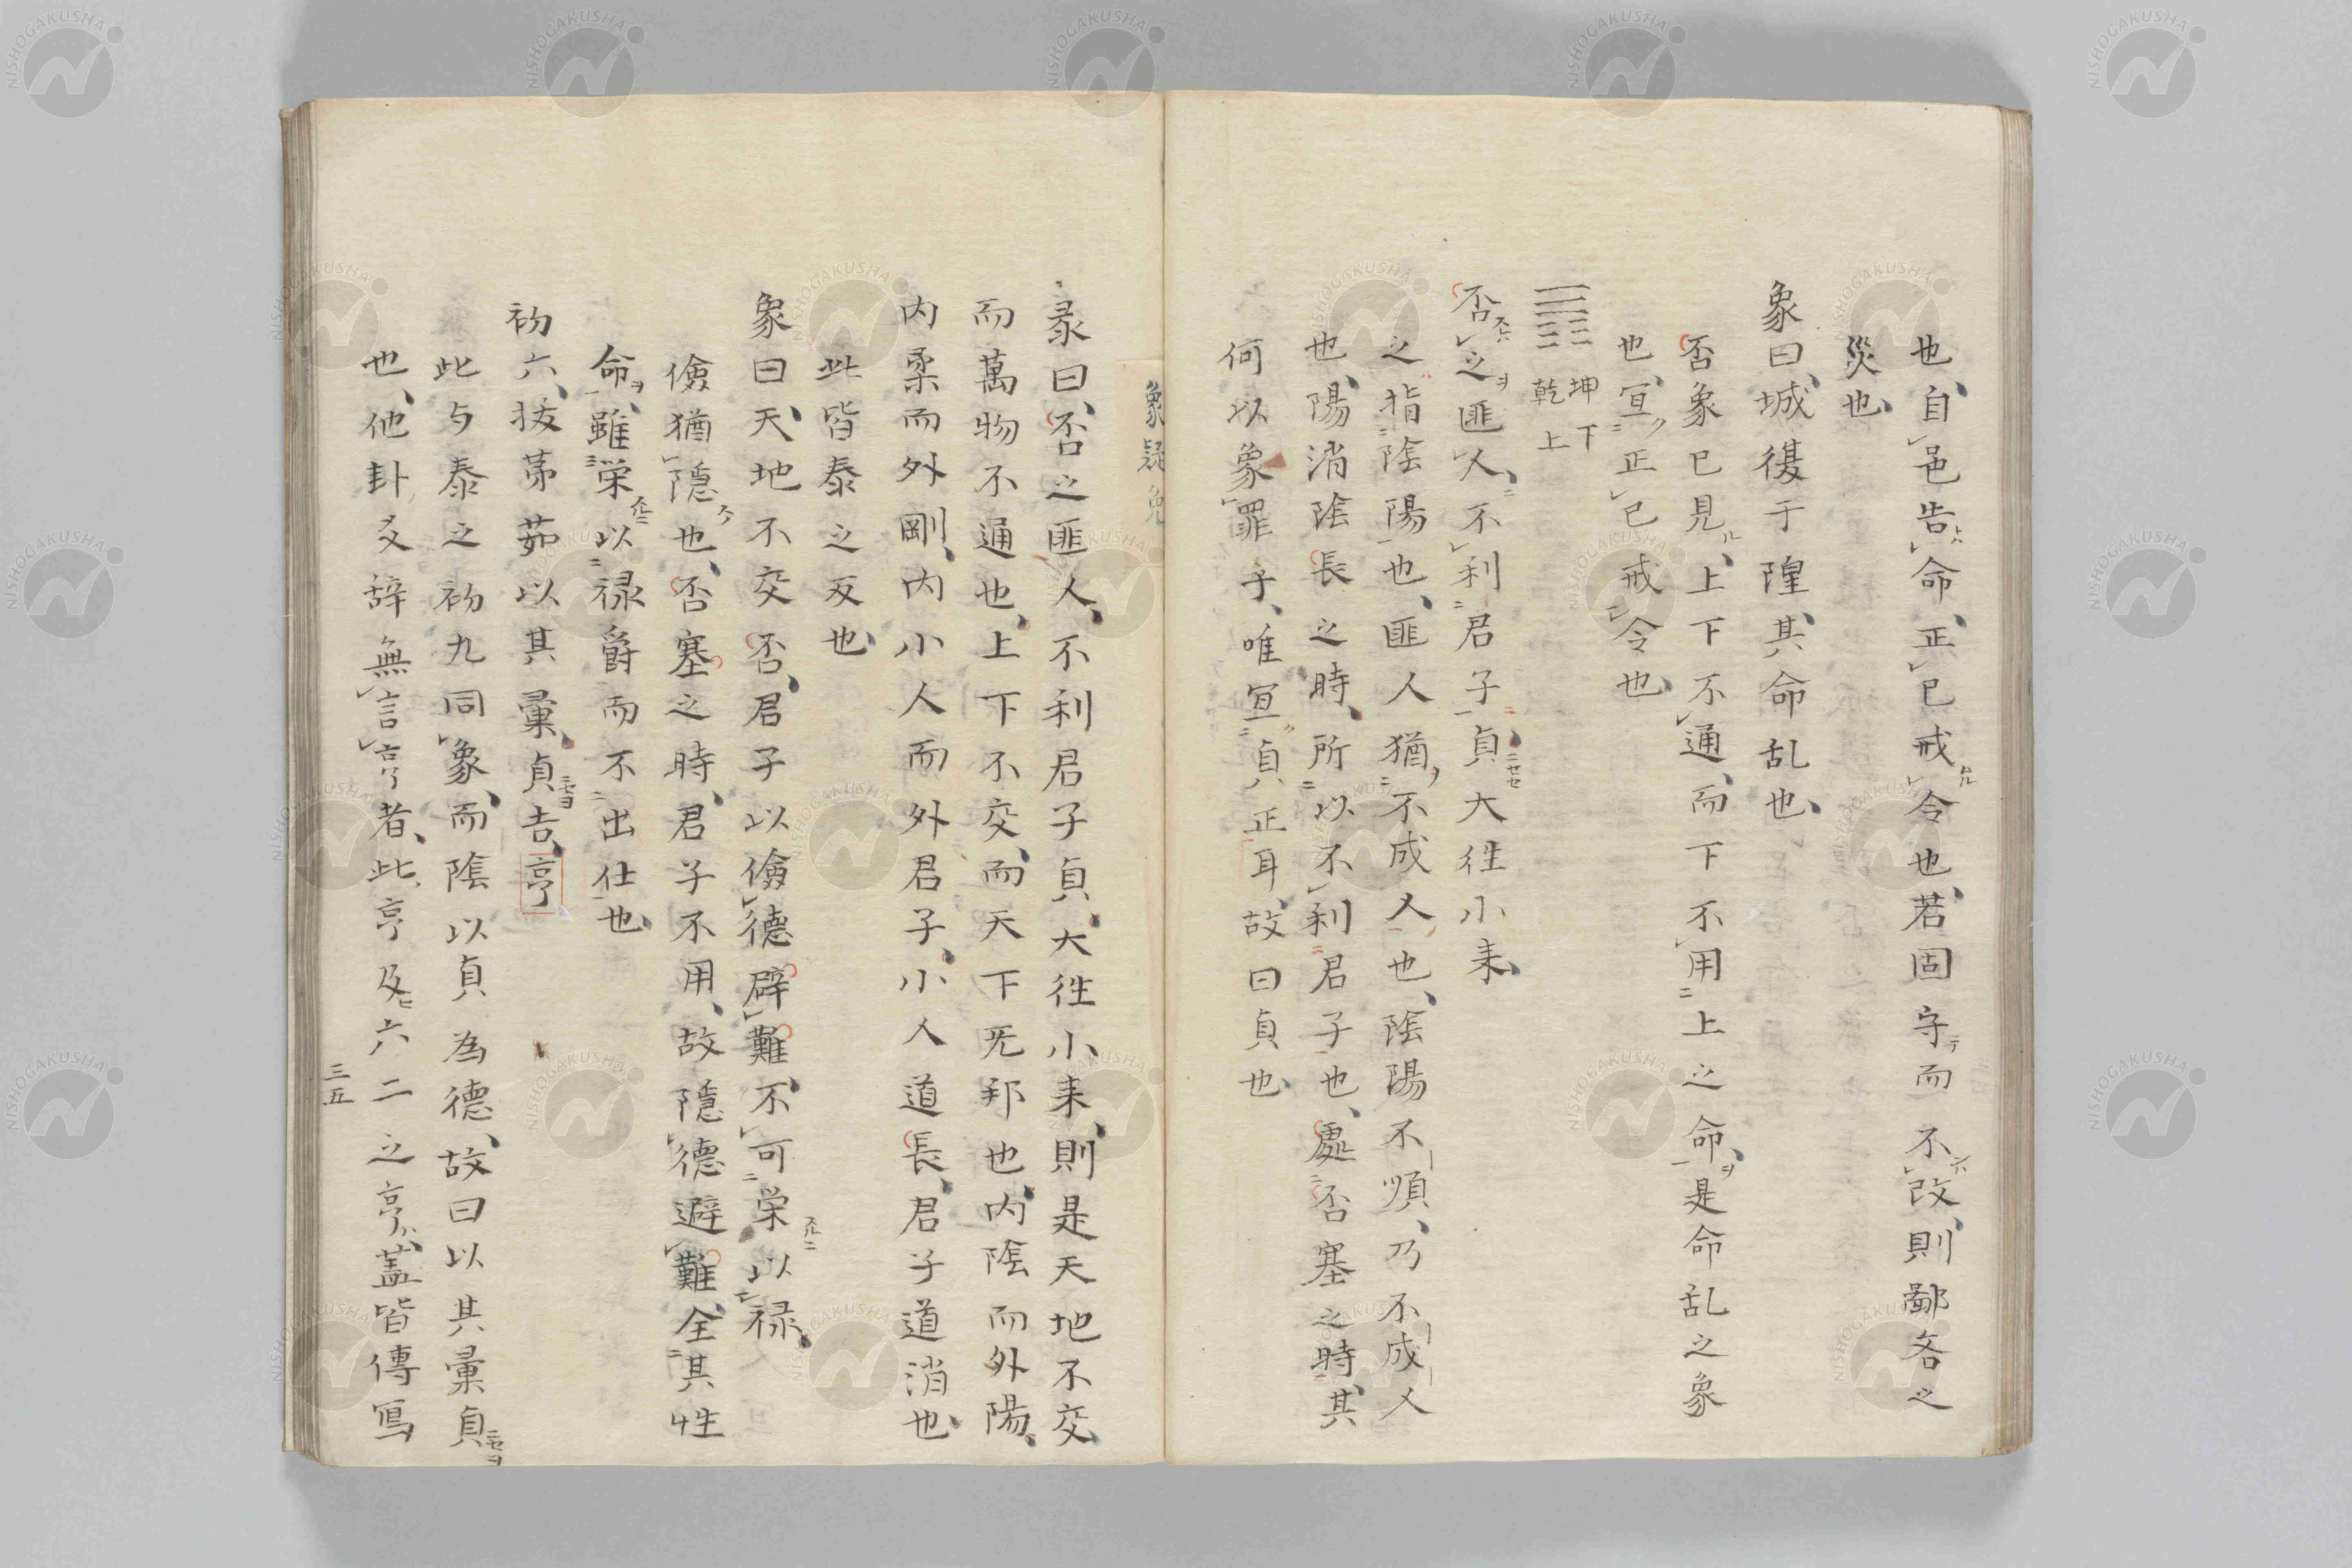 也、自邑告命、正已戒令也、若固守而不改、則鄙吝之
災也、
象曰、城復于隍、其命乱也、
否象已見、上下不通、而下不用上之命、是命乱之象
也、宜正已戒令也、
坤下
乾上
否之匪人、不利君子貞、大徃小来、
之指陰陽也、匪人猶不成人也、陰陽不順、乃不成人
也、陽消陰長之時、所以不利君子也、處否塞之時、其
何以象罪予、唯宜貞正耳、故曰貞也、
象疑免
彖曰、否之匪人、不利君子貞、大徃小来、則是天地不交、
而萬物不通也、上下不交、而天下无邦也、内陰而外陽、
内柔而外剛、内小人而外君子、小人道長、君子道消也、
此皆泰之反也、
象曰、天地不交否、君子以儉德辟難、不可栄以禄、
儉猶隠也、否塞之時、君子不用、故隠德避難、全其性
命、雖栄以禄爵而不出仕也、
初六、拔茅茹以其彙、貞吉、亨
此与泰之初九同象、而陰以貞為德、故曰以其彙貞
也、他卦爻辞無言亨者、此亨及六二之亨、蓋皆傳寫
三五
NISHOGAKUSHA